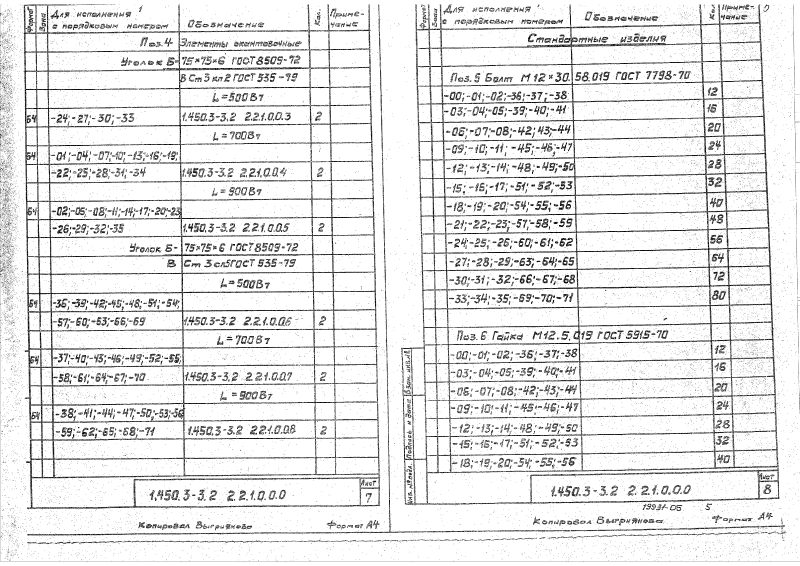 Формат Зона Для исполнения с порядковым номером Обозначение Кол. Приме-чание
Поз.4 Элементы окантовочные
Уголок Б- 75×75×6 ГОСТ 8509-72
В Ст3кп2 ГОСТ 535-79
L=500Вт
Б4 -24;-27;-30;-33 1.450.3-3.2 2.2.1.0.0.3 2
L=700Вт
Б4 -01;-04;-07;-10;-13;-16;-19;
-22;-25;-28;-31;-34 1.450.3-3.2 2.2.1.0.0.4 2
L=900Вт
Б4 -02;-05;-08;-11;-14;-17;-20;-23
-26;-29;-32;-35 1.450.3-3.2 2.2.1.0.0.5 2
Уголок Б- 75×75×6 ГОСТ 8509-72
В Ст3сп5 ГОСТ 535-79
L=500Вт
Б4 -36;-39;-42;-45;-48;-51;-54;
-57;-60;-63;-66;-69 1.450.3-3.2 2.2.1.0.0.6 2
L=700Вт
Б4 -37;-40;-43;-46;-49;-52;-55;
-58;-61;-64;-67;-70 1.450.3-3.2 2.2.1.0.0.7 2
L=900Вт
Б4 -38;-41;-44;-47;-50;-53;-56
-59;-62;-65;-68;-71 1.450.3-3.2 2.2.1.0.0.8 2
1.450.3-3.2 2.2.1.0.0.0 Лист 7
Копировал Выгриянова Формат А4
Формат Зона Для исполнения с порядковым номером Обозначение Кол Приме-чание
Стандартные изделия
Поз.5 Болт М12×30.58.019 ГОСТ 7798-70
-00;-01;-02;-36;-37;-38 12
-03;-04;-05;-39;-40;-41 16
-06;-07;-08;-42;43;-44 20
-09;-10;-11;-45;-46;-47 24
-12;-13;-14;-48;-49;-50 28
-15;-16;-17;-51;-52;-53 32
-18;-19;-20;-54;-55;-56 40
-21;-22;-23;-57;-58;-59 48
-24;-25;-26;-60;-61;-62 56
-27;-28;-29;-63;-64;-65 64
-30;-31;-32;-66;-67;-68 72
-33;-34;-35;-69;-70;-71 80
Поз.6 Гайка М12.5.019 ГОСТ 5915-70
-00;-01;-02;-36;-37;-38 12
-03;-04;-05;-39;-40;-41 16
-06;-07;-08;-42;-43;-44 20
-09;-10;-11;-45;-46;-47 24
-12;-13;-14;-48;-49;-50 28
-15;-16;-17;-51;-52;-53 32
-18;-19;-20;-54;-55;-56 40
Инв. №подл. Подпись и дата Взам. инв.№
1.450.3-3.2 2.2.1.0.0.0 Лист 8
19931-05 5
Копировал Выгриянова Формат А4